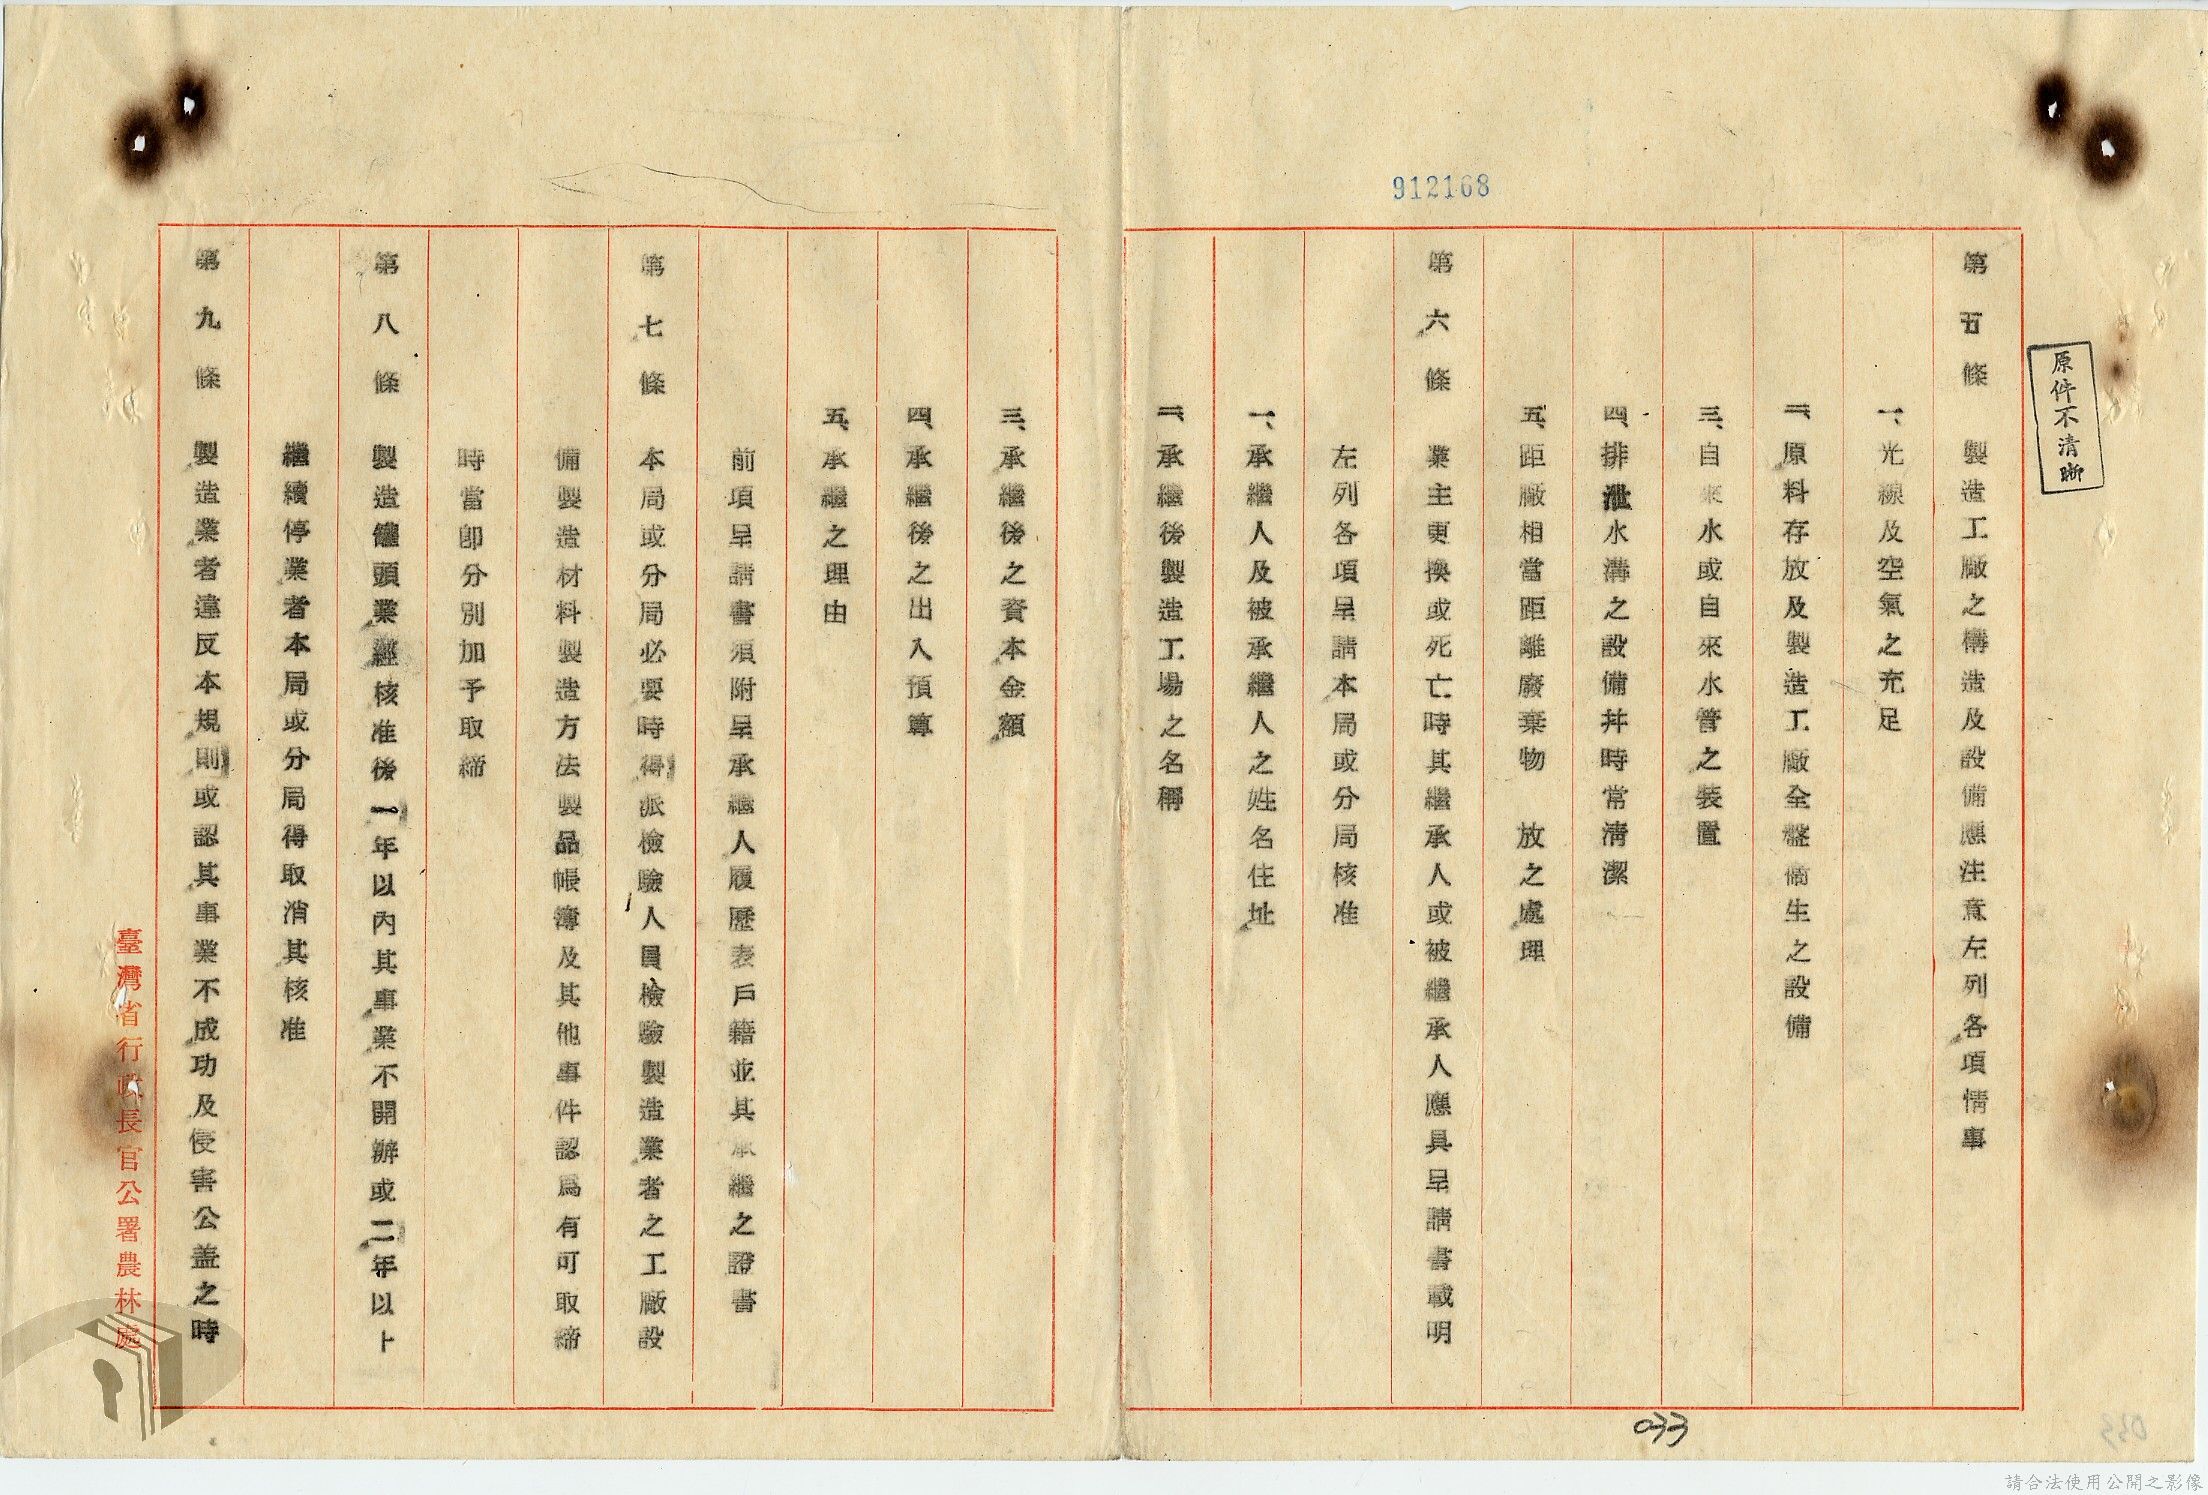 912168
原件不清晰
第五條 製造工廠之構造及設備應注意左列各項情事
一、光線及空氣之充足
二、原料存放及製造工廠全盤衛生之設備
三、自來水或自來水管之裝置
四、排泄水溝之設備并時常清潔
五、距廠相當距離廢棄物 放之處理
第六條 業主更換或死亡時其繼承人或被繼承人應具呈請書載明
左列各項呈請本局或分局核准
一、承繼人及被承繼人之姓名住址
二、承繼後製造工場之名稱
三、承繼後之資本金額
四、承繼後之出入預算
五、承繼之理由
前項呈請書須附呈承繼人履歷表戶籍並其承繼之證書
第七條 本局或分局必要時得派檢驗人員檢驗製造業者之工廠設
備製造材料製造方法製品帳簿及其他事件認為有可取締
時當卽分別加予取締
第八條 製造罐頭業經核准後一年以內其事業不開辦或二年以上
繼續停業者本局或分局得取消其核准
第九條 製造業者違反本規則或認其事業不成功及侵害公益之時
臺灣省行政長官公署農林處
033
請合法使用公開之影像